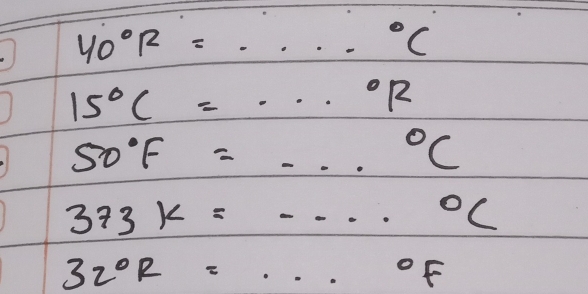 40°R = ..... °C
15°C = .... °R
50°F = --.. °C
373 K = --... °C
32°R = ... °F